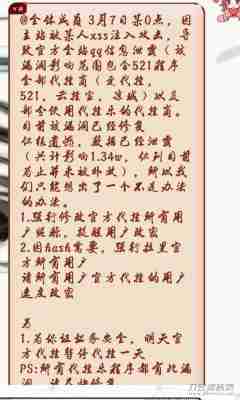 @全体成员 3月7日某0点，因
主站被某人xss注入攻击，导
致官方全站qq信息泄露（该
漏洞影响范围包含521程序
全部代挂商（
521，云挂宝，　　）以及
部分使用代挂乐的代挂商。
目前该漏洞已经修复
但很遗憾，数据已经泄露
（共计影响1.34w，但到目前
为止并未被外放），所以我
们只能想出了一个不是办法
的办法。
1.强行修改官方代挂所有用
户　　，提醒用户改密
2.因hash需要，强行拉黑官
方所有用户
请所有官方代挂的用户
速度改密
为
1.为保证证券安全，明天官
方代挂暂停代挂一天
PS:所有代挂乐程序都有此漏